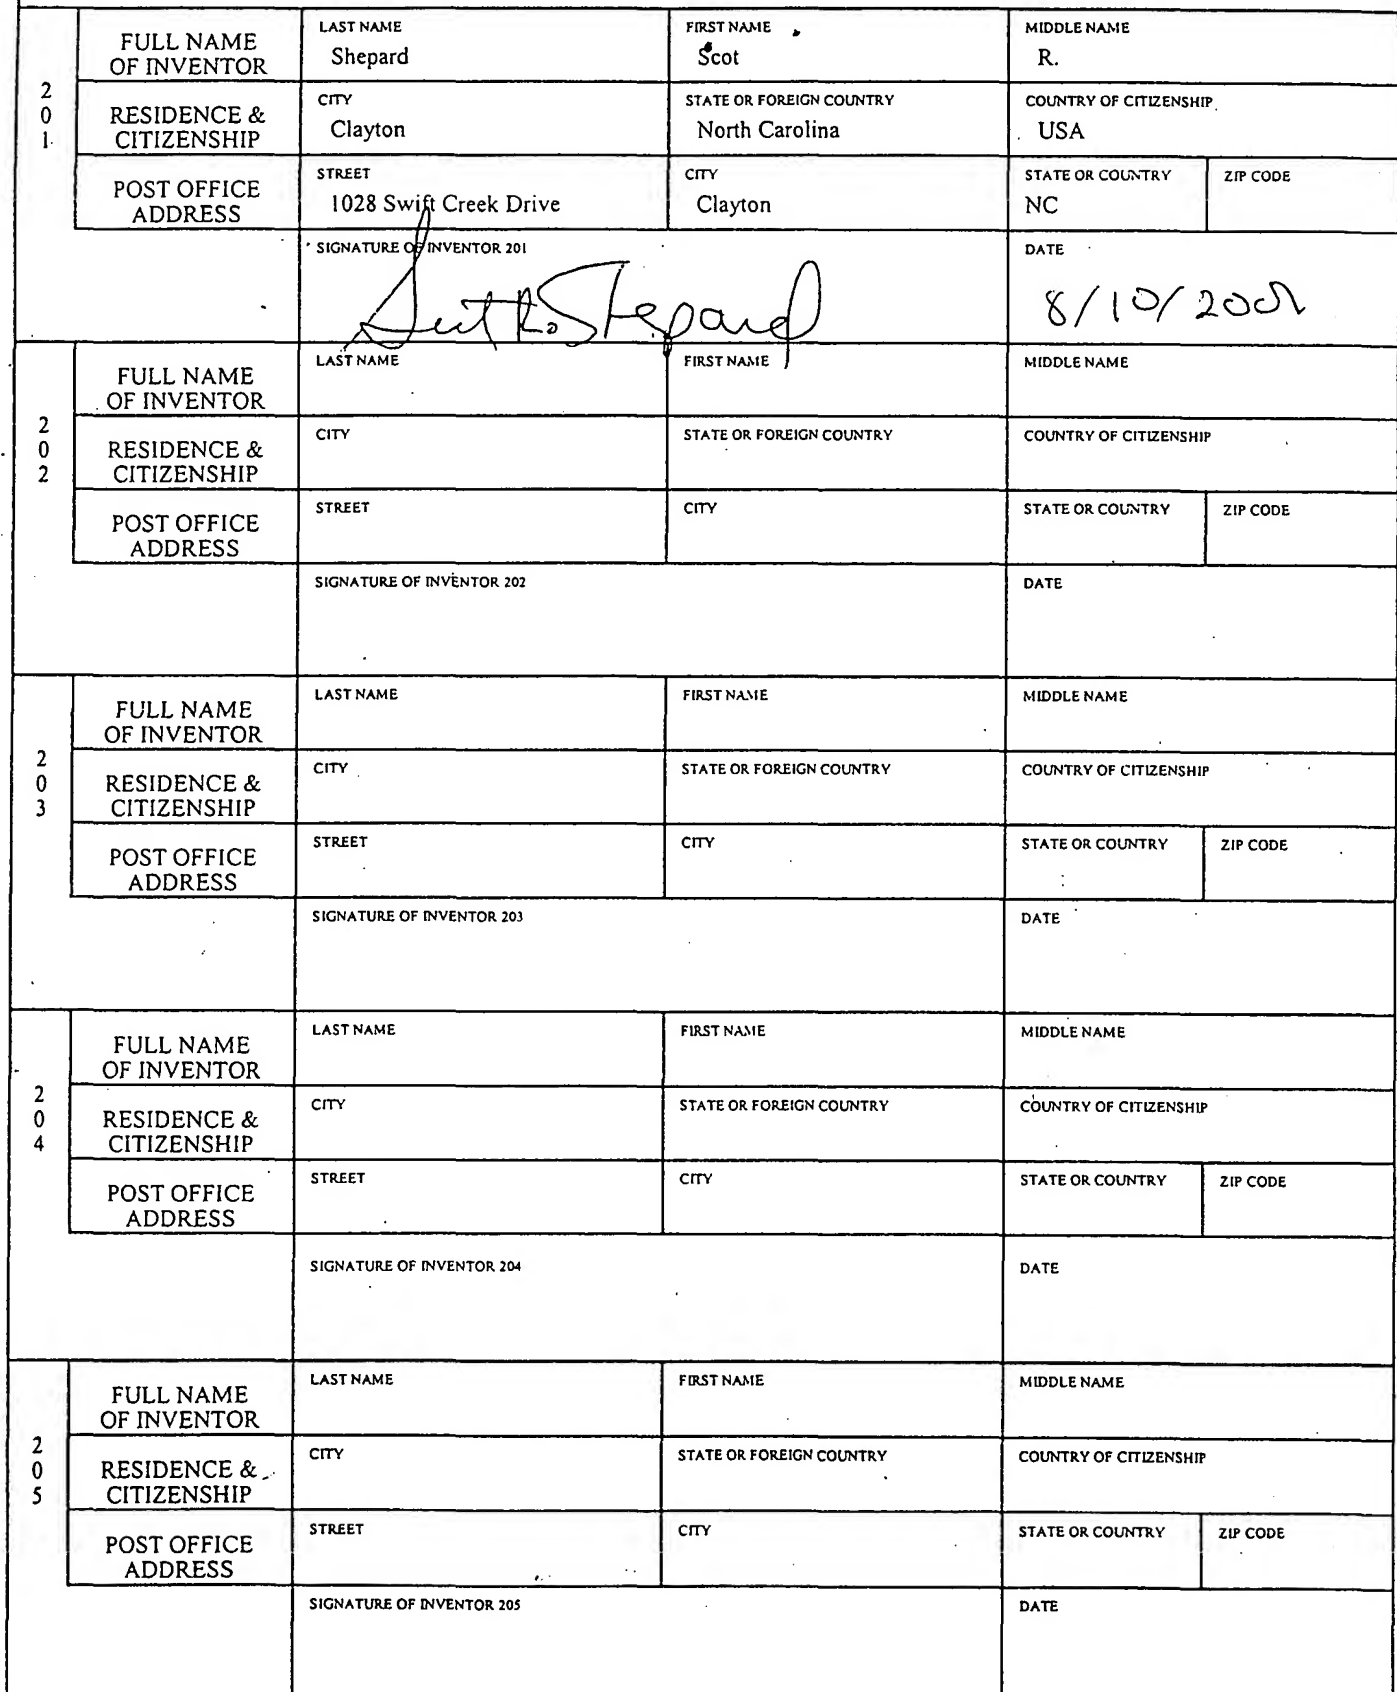 201
FULL NAME OF INVENTOR
LAST NAME
Shepard
FIRST NAME
Scot
MIDDLE NAME
R.
RESIDENCE & CITIZENSHIP
CITY
Clayton
STATE OR FOREIGN COUNTRY
North Carolina
COUNTRY OF CITIZENSHIP
USA
POST OFFICE ADDRESS
STREET
1028 Swift Creek Drive
CITY
Clayton
STATE OR COUNTRY
NC
ZIP CODE
SIGNATURE OF INVENTOR 201
Scot R. Shepard
DATE
8/10/200
202
FULL NAME OF INVENTOR
LAST NAME
FIRST NAME
MIDDLE NAME
RESIDENCE & CITIZENSHIP
CITY
STATE OR FOREIGN COUNTRY
COUNTRY OF CITIZENSHIP
POST OFFICE ADDRESS
STREET
CITY
STATE OR COUNTRY
ZIP CODE
SIGNATURE OF INVENTOR 202
DATE
203
FULL NAME OF INVENTOR
LAST NAME
FIRST NAME
MIDDLE NAME
RESIDENCE & CITIZENSHIP
CITY
STATE OR FOREIGN COUNTRY
COUNTRY OF CITIZENSHIP
POST OFFICE ADDRESS
STREET
CITY
STATE OR COUNTRY
ZIP CODE
SIGNATURE OF INVENTOR 203
DATE
204
FULL NAME OF INVENTOR
LAST NAME
FIRST NAME
MIDDLE NAME
RESIDENCE & CITIZENSHIP
CITY
STATE OR FOREIGN COUNTRY
COUNTRY OF CITIZENSHIP
POST OFFICE ADDRESS
STREET
CITY
STATE OR COUNTRY
ZIP CODE
SIGNATURE OF INVENTOR 204
DATE
205
FULL NAME OF INVENTOR
LAST NAME
FIRST NAME
MIDDLE NAME
RESIDENCE & CITIZENSHIP
CITY
STATE OR FOREIGN COUNTRY
COUNTRY OF CITIZENSHIP
POST OFFICE ADDRESS
STREET
CITY
STATE OR COUNTRY
ZIP CODE
SIGNATURE OF INVENTOR 205
DATE